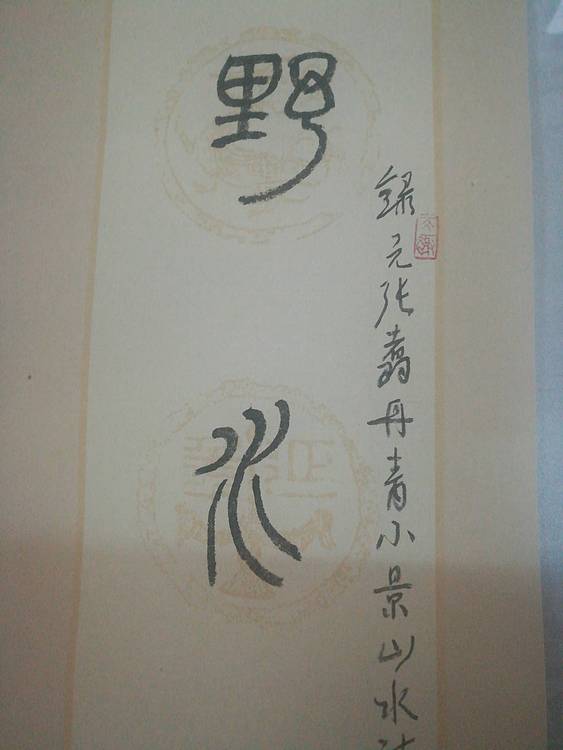 錄元张翥丹青小景山水
野水